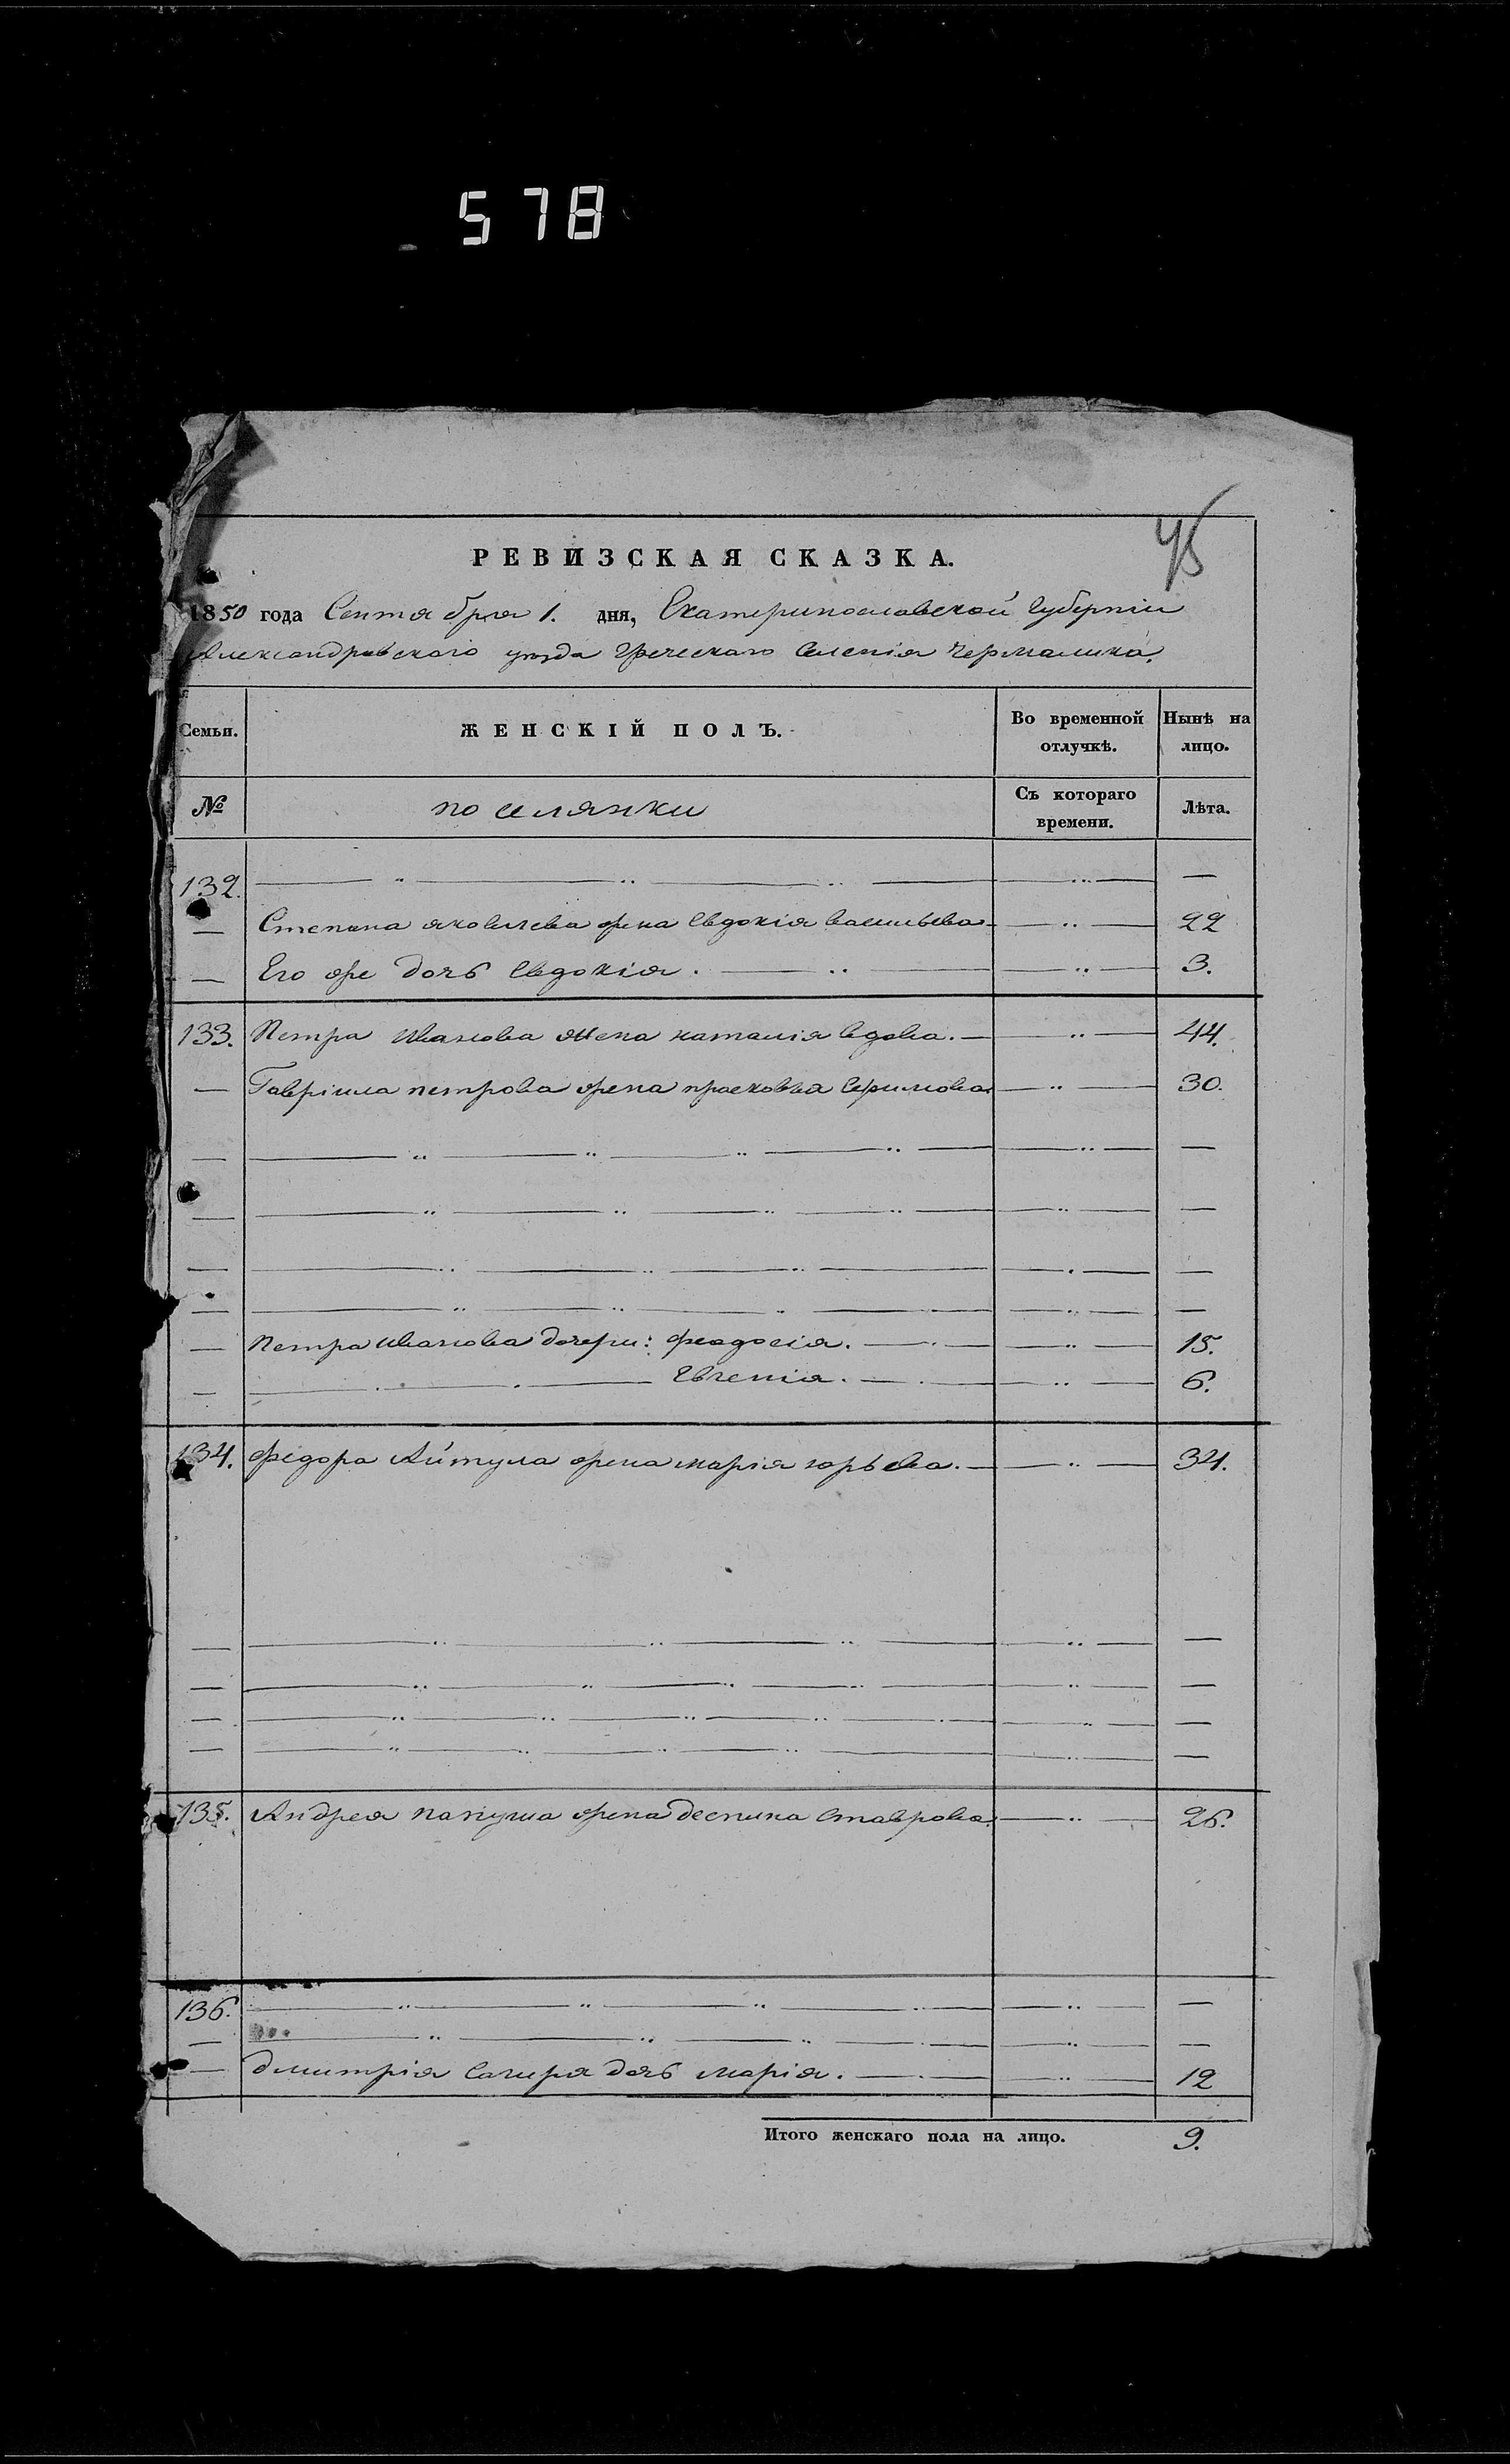 578
45
РЕВИЗСКАЯ СКАЗКА.
1850 года Сентября 1. дня, Екатеринославской Губерніи
Александровского уѣзда Греческаго Селенія Чермалика.
Семьи. ЖЕНСКІЙ ПОЛЪ. Во временной отлучкѣ. Нынѣ на лицо.
№ поселянки Съ котораго времени. Лѣта.
132. — „ — „ — „ — „ — —
— Степана яковлева жена Евдокія васильева — „ — 22
— Его же дочь Евдокія. — „ — — „ — 3.
133. Петра Иванова жена наталія вдова. — — „ — 44.
— Гавріила петрова жена прасковья Ефимова — „ — 30.
— — „ — „ — „ — „ — — „ — —
— — „ — „ — „ — „ — — „ — —
— — „ — „ — „ — — „ — —
— — „ — „ — „ — — „ — —
— Петра иванова дочери: феодосія. — — „ — 15.
— — Евгенія. — — „ — 6.
134. федора Айтула жена марія юрьева. — — „ — 34.
— — „ — „ — „ — — „ — —
— — „ — „ — „ — „ — — „ — —
— — „ — „ — „ — „ — — „ — —
— — „ — „ — „ — „ — — „ — —
135. Андрея папуша жена деспина Ставрова. — „ — 26.
136. — „ — „ — „ — „ — — „ — —
— — „ — „ — „ — — „ — —
— дмитрія Сагиря дочь марія. — — „ — 12
Итого женскаго пола на лицо. 9.